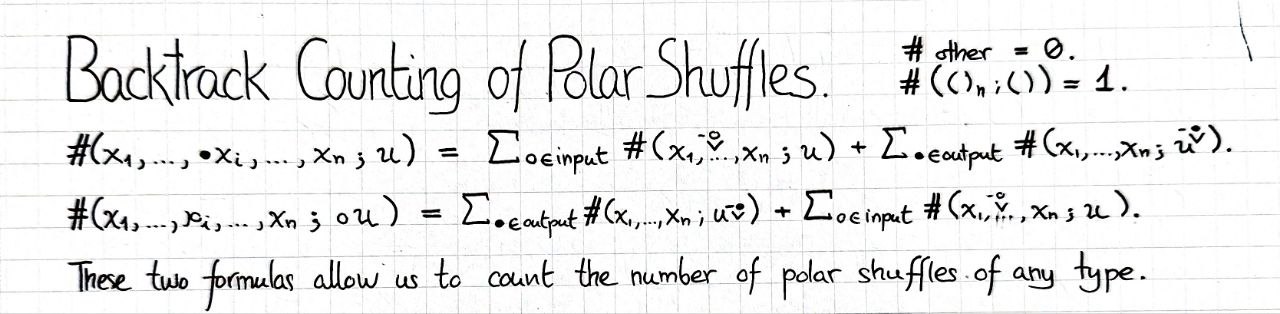 Backtrack Counting of Polar Shuffles.
# other = 0.
# (()ₙ ; ()) = 1.
#(x₁, ..., •xᵢ, ..., xₙ ; u) = ∑∘∈input #(x₁, ..., xₙ ; u) + ∑•∈output #(x₁, ..., xₙ ; u).
#(x₁, ..., xᵢ, ..., xₙ ; ∘u) = ∑•∈output #(x₁, ..., xₙ ; u) + ∑∘∈input #(x₁, ..., xₙ ; u).
These two formulas allow us to count the number of polar shuffles of any type.